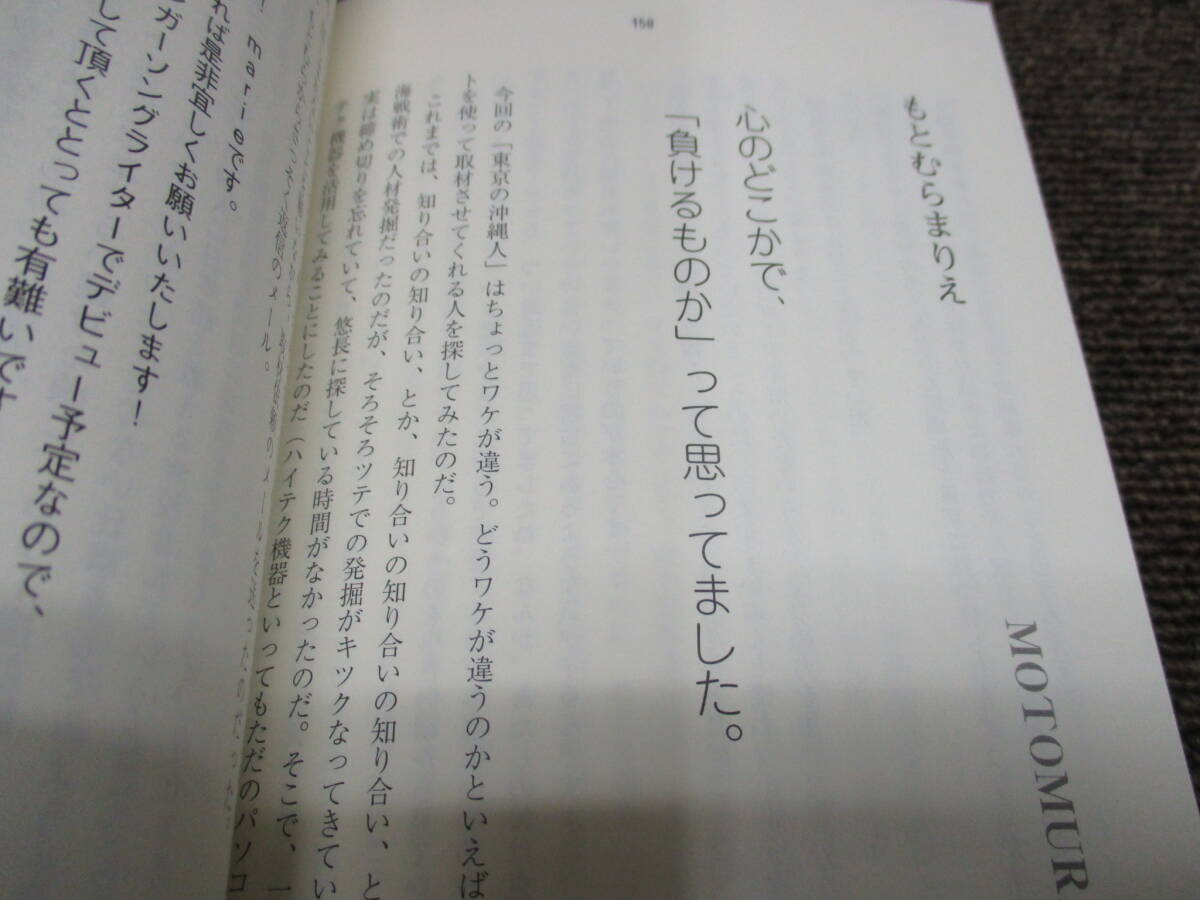 158
もとむらまりえ
MOTOMUR
心のどこかで、
「負けるものか」って思ってました。
今回の「東京の沖縄人」はちょっとワケが違う。どうワケが違うのかといえば
トを使って取材させてくれる人を探してみたのだ。
これまでは、知り合いの知り合い、とか、知り合いの知り合いの知り合い、と
海戦術での人材発掘だったのだが、そろそろツテでの発掘がキツクなってきてい
実は締め切りを忘れていて、悠長に探している時間がなかったのだ。そこで、一
テク機器を活用してみることにしたのだ（ハイテク機器といってもただのパソコ
返信のメール。
！ marieです。
れば是非宜しくお願いいたします！
ンガーソングライターでデビュー予定なので、
して頂くととっても有難いです